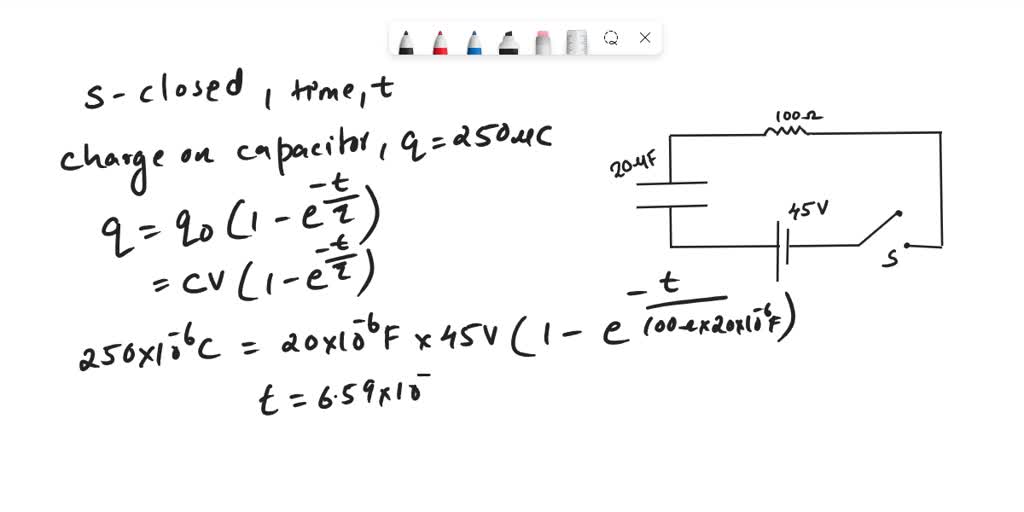 S-closed, time, t
charge on capacitor, q = 250 μC
q = q₀ (1 - e^(-t/τ))
= CV (1 - e^(-t/τ))
250×10⁻⁶C = 20×10⁻⁶F × 45V (1 - e^(-t/(100Ω×20×10⁻⁶F)))
t = 6.59×10⁻
100Ω
20μF
45V
S